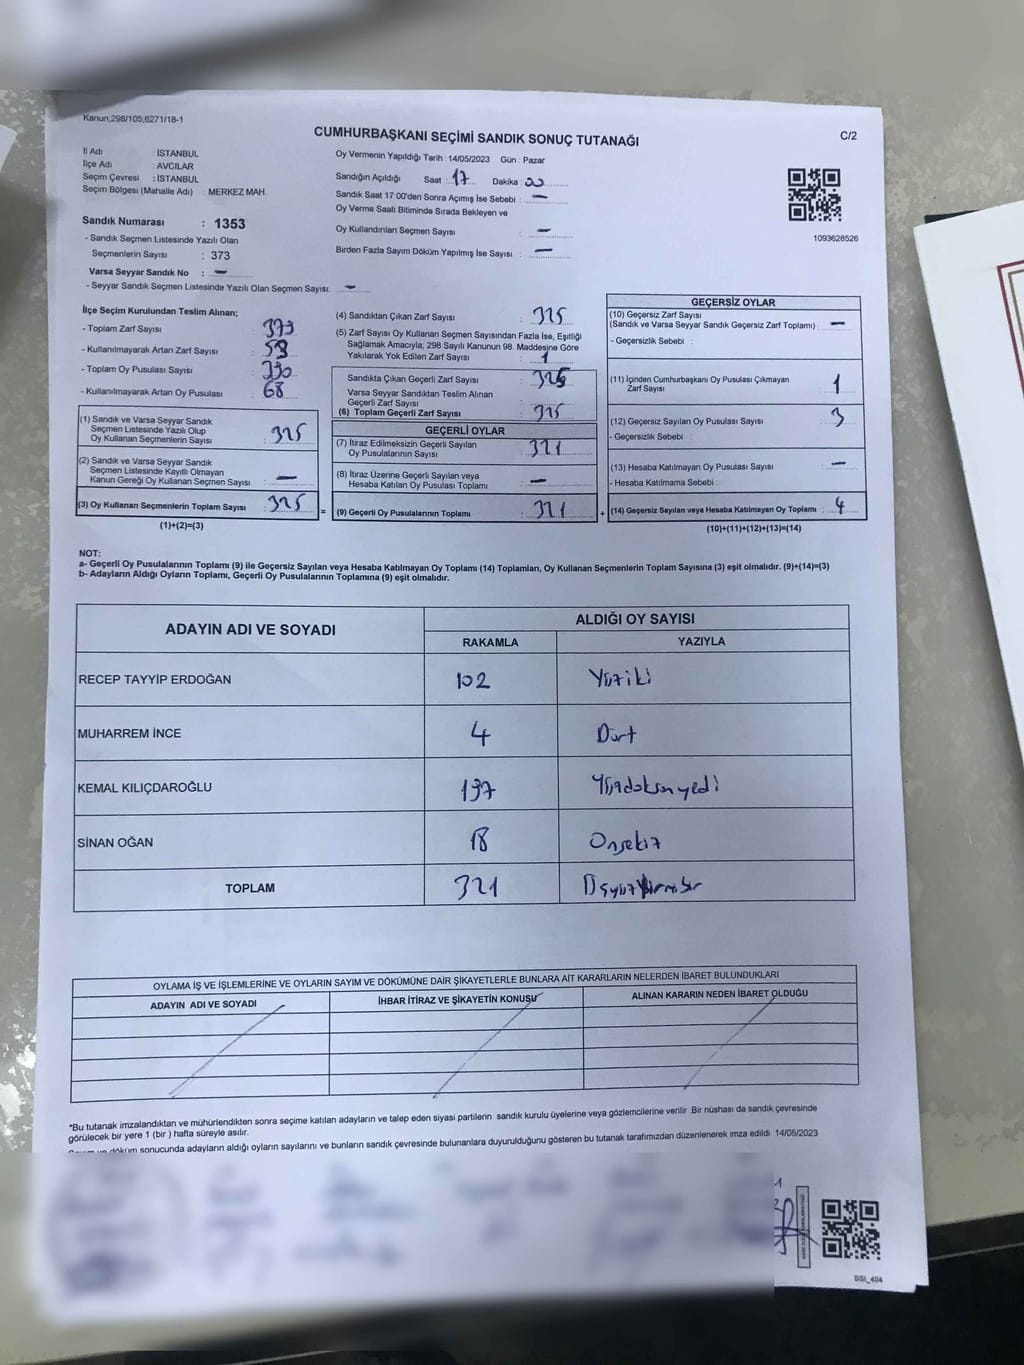 Kanun,298/105,6271/18-1
CUMHURBAŞKANI SEÇİMİ SANDIK SONUÇ TUTANAĞI
C/2
İl Adı : İSTANBUL
İlçe Adı : AVCILAR
Seçim Çevresi : İSTANBUL
Seçim Bölgesi (Mahalle Adı) : MERKEZ MAH.
Sandık Numarası : 1353
- Sandık Seçmen Listesinde Yazılı Olan
Seçmenlerin Sayısı : 373
Varsa Seyyar Sandık No : -
- Seyyar Sandık Seçmen Listesinde Yazılı Olan Seçmen Sayısı: -
Oy Vermenin Yapıldığı Tarih : 14/05/2023 Gün : Pazar
Sandığın Açıldığı Saat : 17 Dakika : 00
Sandık Saat 17:00'den Sonra Açımış İse Sebebi : -
Oy Verme Saati Bitiminde Sırada Bekleyen ve
Oy Kullandırılan Seçmen Sayısı : -
Birden Fazla Sayım Döküm Yapılmış İse Sayısı : -
1093628526
İlçe Seçim Kurulundan Teslim Alınan;
- Toplam Zarf Sayısı : 373
- Kullanılmayarak Artan Zarf Sayısı :
- Toplam Oy Pusulası Sayısı :
- Kullanılmayarak Artan Oy Pusulası : 68
(1) Sandık ve Varsa Seyyar Sandık
Seçmen Listesinde Yazılı Olup
Oy Kullanan Seçmenlerin Sayısı : 325
(2) Sandık ve Varsa Seyyar Sandık
Seçmen Listesinde Kayıtlı Olmayan
Kanun Gereği Oy Kullanan Seçmen Sayısı : -
(3) Oy Kullanan Seçmenlerin Toplam Sayısı : 325
(1)+(2)=(3)
(4) Sandıktan Çıkan Zarf Sayısı : 325
(5) Zarf Sayısı Oy Kullanan Seçmen Sayısından Fazla İse, Eşitliği
Sağlamak Amacıyla; 298 Sayılı Kanunun 98. Maddesine Göre
Yakılarak Yok Edilen Zarf Sayısı : 1
Sandıkta Çıkan Geçerli Zarf Sayısı : 325
Varsa Seyyar Sandıktan Teslim Alınan
Geçerli Zarf Sayısı
(6) Toplam Geçerli Zarf Sayısı : 325
GEÇERLİ OYLAR
(7) İtiraz Edilmeksizin Geçerli Sayılan
Oy Pusulalarının Sayısı : 321
(8) İtiraz Üzerine Geçerli Sayılan veya
Hesaba Katılan Oy Pusulası Toplamı : -
= (9) Geçerli Oy Pusulalarının Toplamı : 321
GEÇERSİZ OYLAR
(10) Geçersiz Zarf Sayısı
(Sandık ve Varsa Seyyar Sandık Geçersiz Zarf Toplamı) : -
- Geçersizlik Sebebi :
(11) İçinden Cumhurbaşkanı Oy Pusulası Çıkmayan
Zarf Sayısı : 1
(12) Geçersiz Sayılan Oy Pusulası Sayısı : 3
- Geçersizlik Sebebi :
(13) Hesaba Katılmayan Oy Pusulası Sayısı : -
- Hesaba Katılmama Sebebi :
+ (14) Geçersiz Sayılan veya Hesaba Katılmayan Oy Toplamı : 4
(10)+(11)+(12)+(13)=(14)
NOT:
a- Geçerli Oy Pusulalarının Toplamı (9) ile Geçersiz Sayılan veya Hesaba Katılmayan Oy Toplamı (14) Toplamları, Oy Kullanan Seçmenlerin Toplam Sayısına (3) eşit olmalıdır. (9)+(14)=(3)
b- Adayların Aldığı Oyların Toplamı, Geçerli Oy Pusulalarının Toplamına (9) eşit olmalıdır.
ADAYIN ADI VE SOYADI
ALDIĞI OY SAYISI
RAKAMLA YAZIYLA
RECEP TAYYİP ERDOĞAN 102 Yüziki
MUHARREM İNCE 4 Dört
KEMAL KILIÇDAROĞLU 197 Yüzdoksanyedi
SİNAN OĞAN 18 Onsekiz
TOPLAM 321 Üçyüzyirmibir
OYLAMA İŞ VE İŞLEMLERİNE VE OYLARIN SAYIM VE DÖKÜMÜNE DAİR ŞİKAYETLERLE BUNLARA AİT KARARLARIN NELERDEN İBARET BULUNDUKLARI
ADAYIN ADI VE SOYADI İHBAR İTİRAZ VE ŞİKAYETİN KONUSU ALINAN KARARIN NEDEN İBARET OLDUĞU
*Bu tutanak imzalandıktan ve mühürlendikten sonra seçime katılan adayların ve talep eden siyasi partilerin sandık kurulu üyelerine veya gözlemcilerine verilir .Bir nüshası da sandık çevresinde
görülecek bir yere 1 (bir ) hafta süreyle asılır.
döküm sonucunda adayların aldığı oyların sayılarını ve bunların sandık çevresinde bulunanlara duyurulduğunu gösteren bu tutanak tarafımızdan düzenlenerek imza edildi 14/05/2023
SSI_404